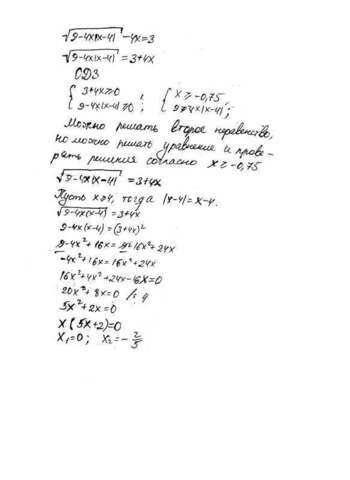 √9-4x|x-4| -4x=3
√9-4x|x-4| =3+4x
ОДЗ
{ 3+4x≥0 ; { x≥-0,75
{ 9-4x|x-4|≥0 ; { 9≥4x|x-4| ;
Можно решать второе неравенство,
но можно решать уравнение и прове-
рить решения согласно x≥-0,75
√9-4x|x-4| =3+4x
Пусть x≥4, тогда |x-4|=x-4.
√9-4x(x-4) =3+4x
9-4x(x-4)=(3+4x)²
9-4x²+16x=9+16x²+24x
-4x²+16x=16x²+24x
16x²+4x²+24x-16x=0
20x²+8x=0 /: 4
5x²+2x=0
x(5x+2)=0
x₁=0; x₂=-2/5